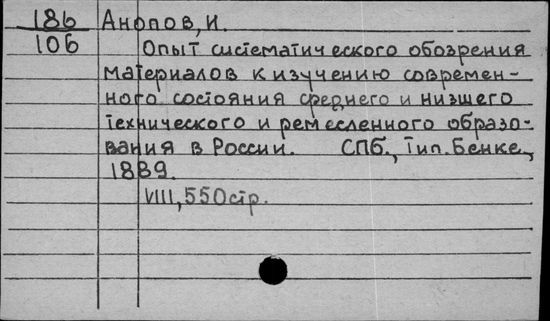 186 Анопов, И.
106 Опыт систематического обозрения
материалов к изучению современ-
ного состояния среднего и низшего
технического и ремесленного образо-
вания в России. СПб., Тип. Бенке,
1889.
VIII, 550 стр.